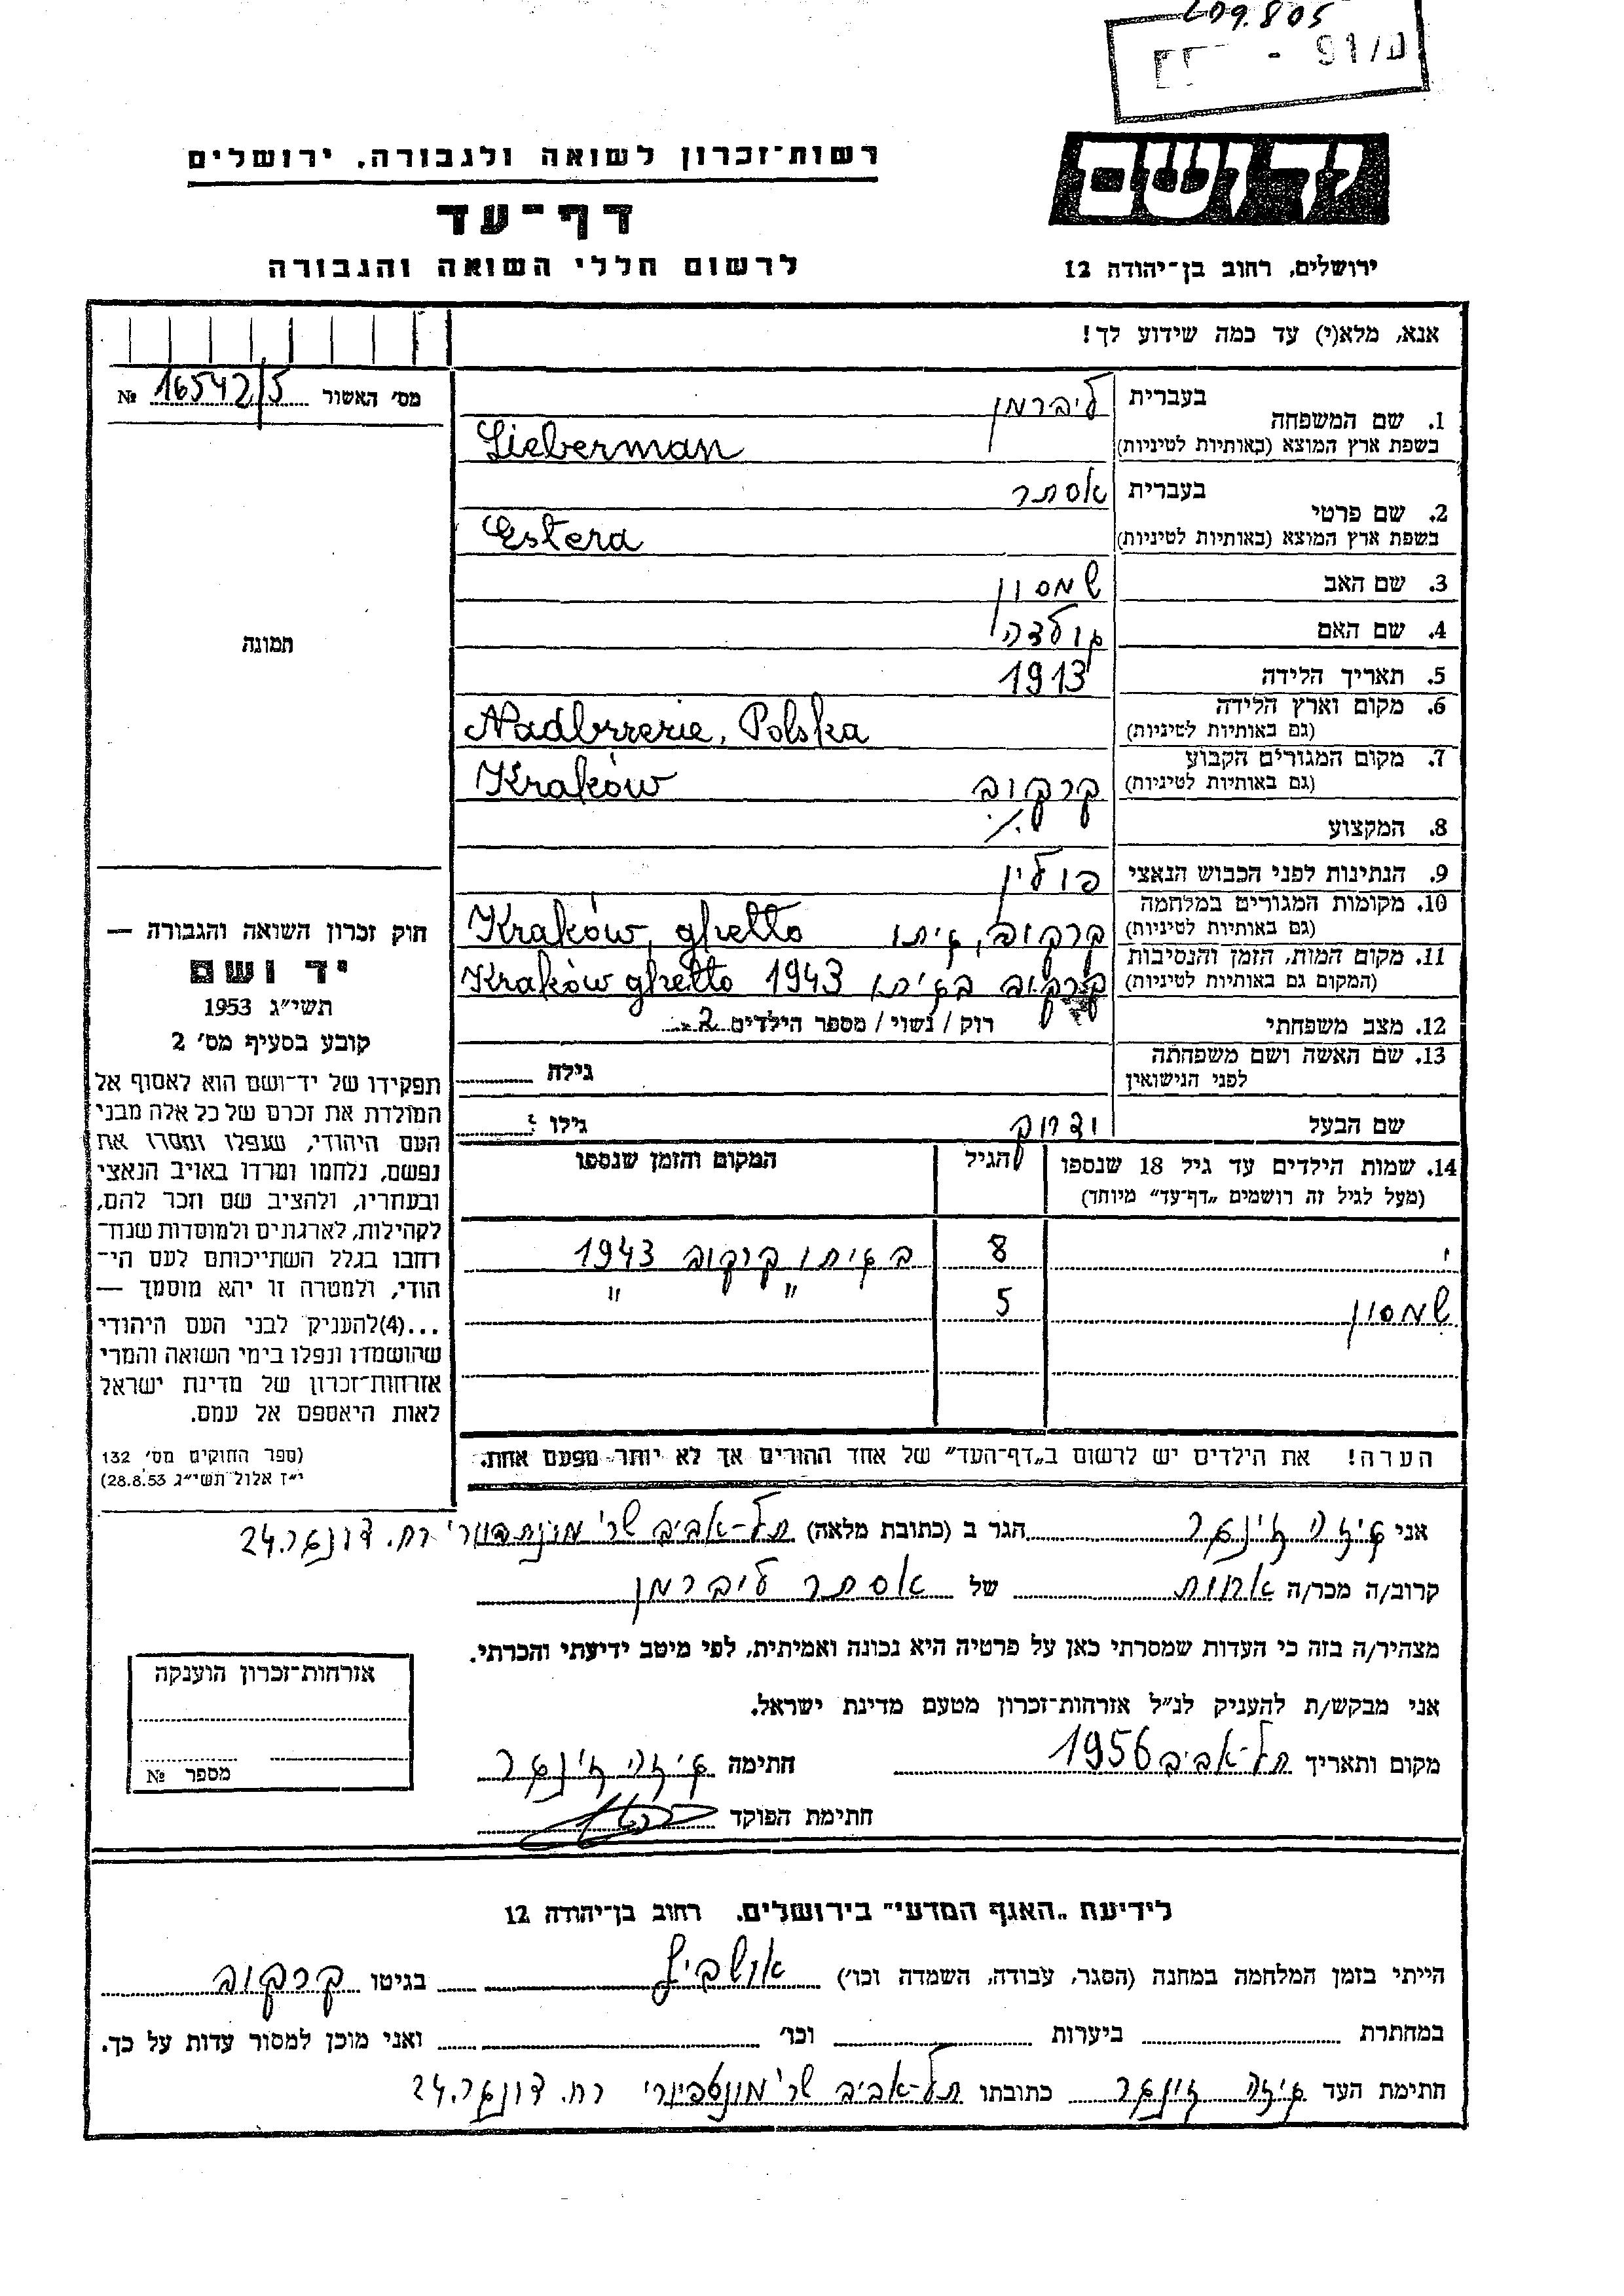 609.805
רשות־זכרון לשואה ולגבורה, ירושלים
דף־עד
לרשום חללי השואה והגבורה
ידושם
ירושלים, רחוב בן־יהודה 12
אנא, מלא(י) עד כמה שידוע לך!
מס׳ האשור 16542/5 №
1. שם המשפחה בעברית ליברמן
בשפת ארץ המוצא (באותיות לטיניות) Lieberman
2. שם פרטי בעברית אסתר
בשפת ארץ המוצא (באותיות לטיניות) Estera
3. שם האב שמסון
4. שם האם גולדה
5. תאריך הלידה 1913
6. מקום וארץ הלידה (גם באותיות לטיניות) Nadbrzezie, Polska
7. מקום המגורים הקבוע (גם באותיות לטיניות) קרקוב Kraków
8. המקצוע
9. הנתינות לפני הכבוש הנאצי פולין
10. מקומות המגורים במלחמה (גם באותיות לטיניות) קרקוב, גיתו Kraków, ghetto
11. מקום המות, הזמן והנסיבות (המקום גם באותיות לטיניות) קרקוב בגיתו 1943 Kraków ghetto
12. מצב משפחתי רוק / נשוי / מספר הילדים 2
13. שם האשה ושם משפחתה לפני הנישואין גילה
שם הבעל גילו
14. שמות הילדים עד גיל 18 שנספו הגיל המקום והזמן שנספו
(מעל לגיל זה רושמים „דף־עד״ מיוחד)
8 בגיתו קרקוב 1943
שמסון 5 " "
הערה! את הילדים יש לרשום ב„דף־העד״ של אחד ההורים אך לא יותר מפעם אחת.
תמונה
חוק זכרון השואה והגבורה —
יד ושם
תשי״ג 1953
קובע בסעיף מס׳ 2
תפקידו של יד־ושם הוא לאסוף אל
המולדת את זכרם של כל אלה מבני
העם היהודי, שנפלו ומסרו את
נפשם, נלחמו ומרדו באויב הנאצי
ובעוזריו, ולהציב שם וזכר להם,
לקהילות, לארגונים ולמוסדות שנח־
רבו בגלל השתייכותם לעם הי־
הודי, ולמטרה זו יהא מוסמך —
...(4)להעניק לבני העם היהודי
שהושמדו ונפלו בימי השואה והמרי
אזרחות־זכרון של מדינת ישראל
לאות היאספם אל עמם.
(ספר החוקים מס׳ 132
י״ז אלול תשי״ג 28.8.53)
אני גיזה זינגר הגר ב (כתובת מלאה) תל-אביב רח. 24
קרוב/ה מכר/ה אחות של אסתר ליברמן
מצהיר/ה בזה כי העדות שמסרתי כאן על פרטיה היא נכונה ואמיתית, לפי מיטב ידיעתי והכרתי.
אני מבקש/ת להעניק לנ״ל אזרחות־זכרון מטעם מדינת ישראל.
מקום ותאריך תל-אביב 1956 חתימה גיזה זינגר
חתימת הפוקד
אזרחות־זכרון הוענקה
מספר №
לידיעת „האגף המדעי״ בירושלים, רחוב בן־יהודה 12
הייתי בזמן המלחמה במחנה (הסגר, עבודה, השמדה וכו׳) אושביץ בגיטו קרקוב
במחתרת ביערות וכו׳ ואני מוכן למסור עדות על כך.
חתימת העד גיזה זינגר כתובתו תל-אביב רח. 24